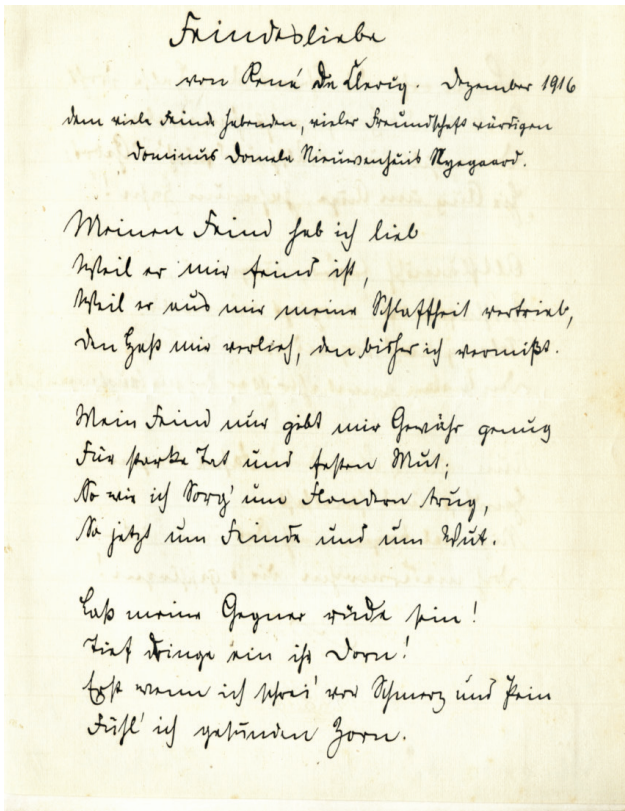 Feindesliebe
von René De Clercq. Dezember 1916
dem viele Feinde habenden, vieler Freundschaft würdigen
Dominus Domela Nieuwenhuis Nyegaard.
Meinen Feind hab ich lieb
Weil er mir feind ist,
Weil er aus mir meine Schlaffheit vertrieb,
Den Haß mir verlieh, den bisher ich vermißt.
Mein Feind nur gibt mir Gewähr genug
Für starke Tat und festen Mut;
So wie ich Sorg' um Flandern trug,
So jetzt um Feinde und um Wut.
Laß meine Gegner rüde sein!
Tief dringe ein ihr Dorn!
Erst wenn ich schrei' vor Schmerz und Pein
Fühl' ich gesunden Zorn.